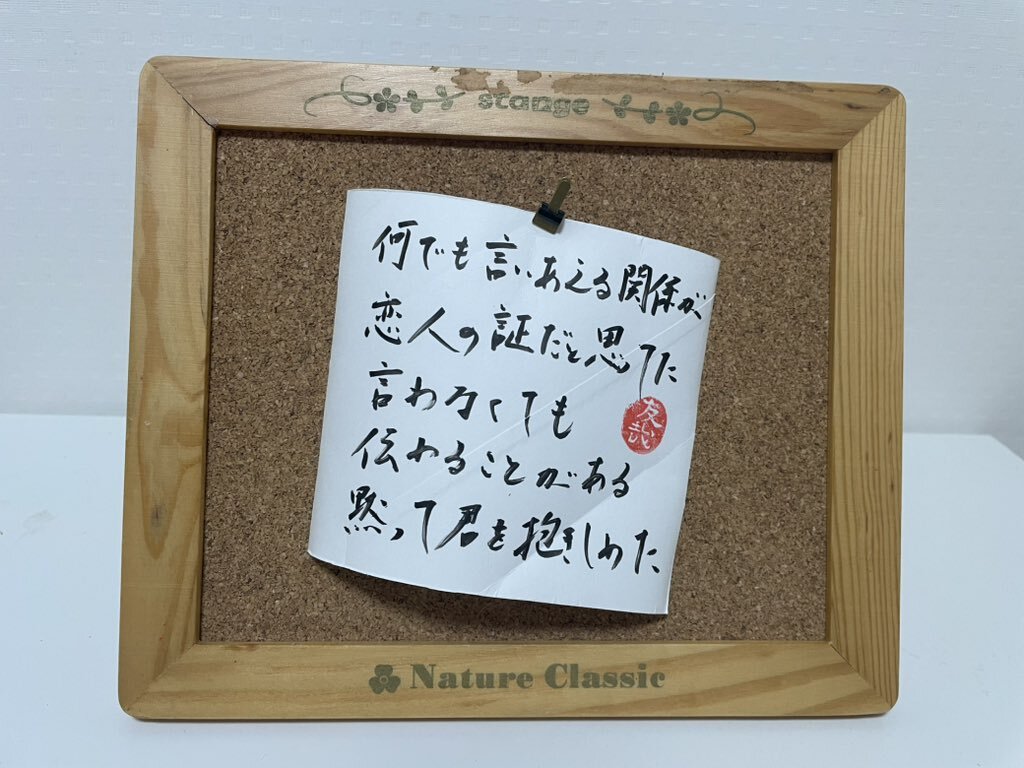 stange
何でも言いあえる関係が
恋人の証だと思てた
言わなくても
友哉
伝わることがある
黙って君を抱きしめた
Nature Classic